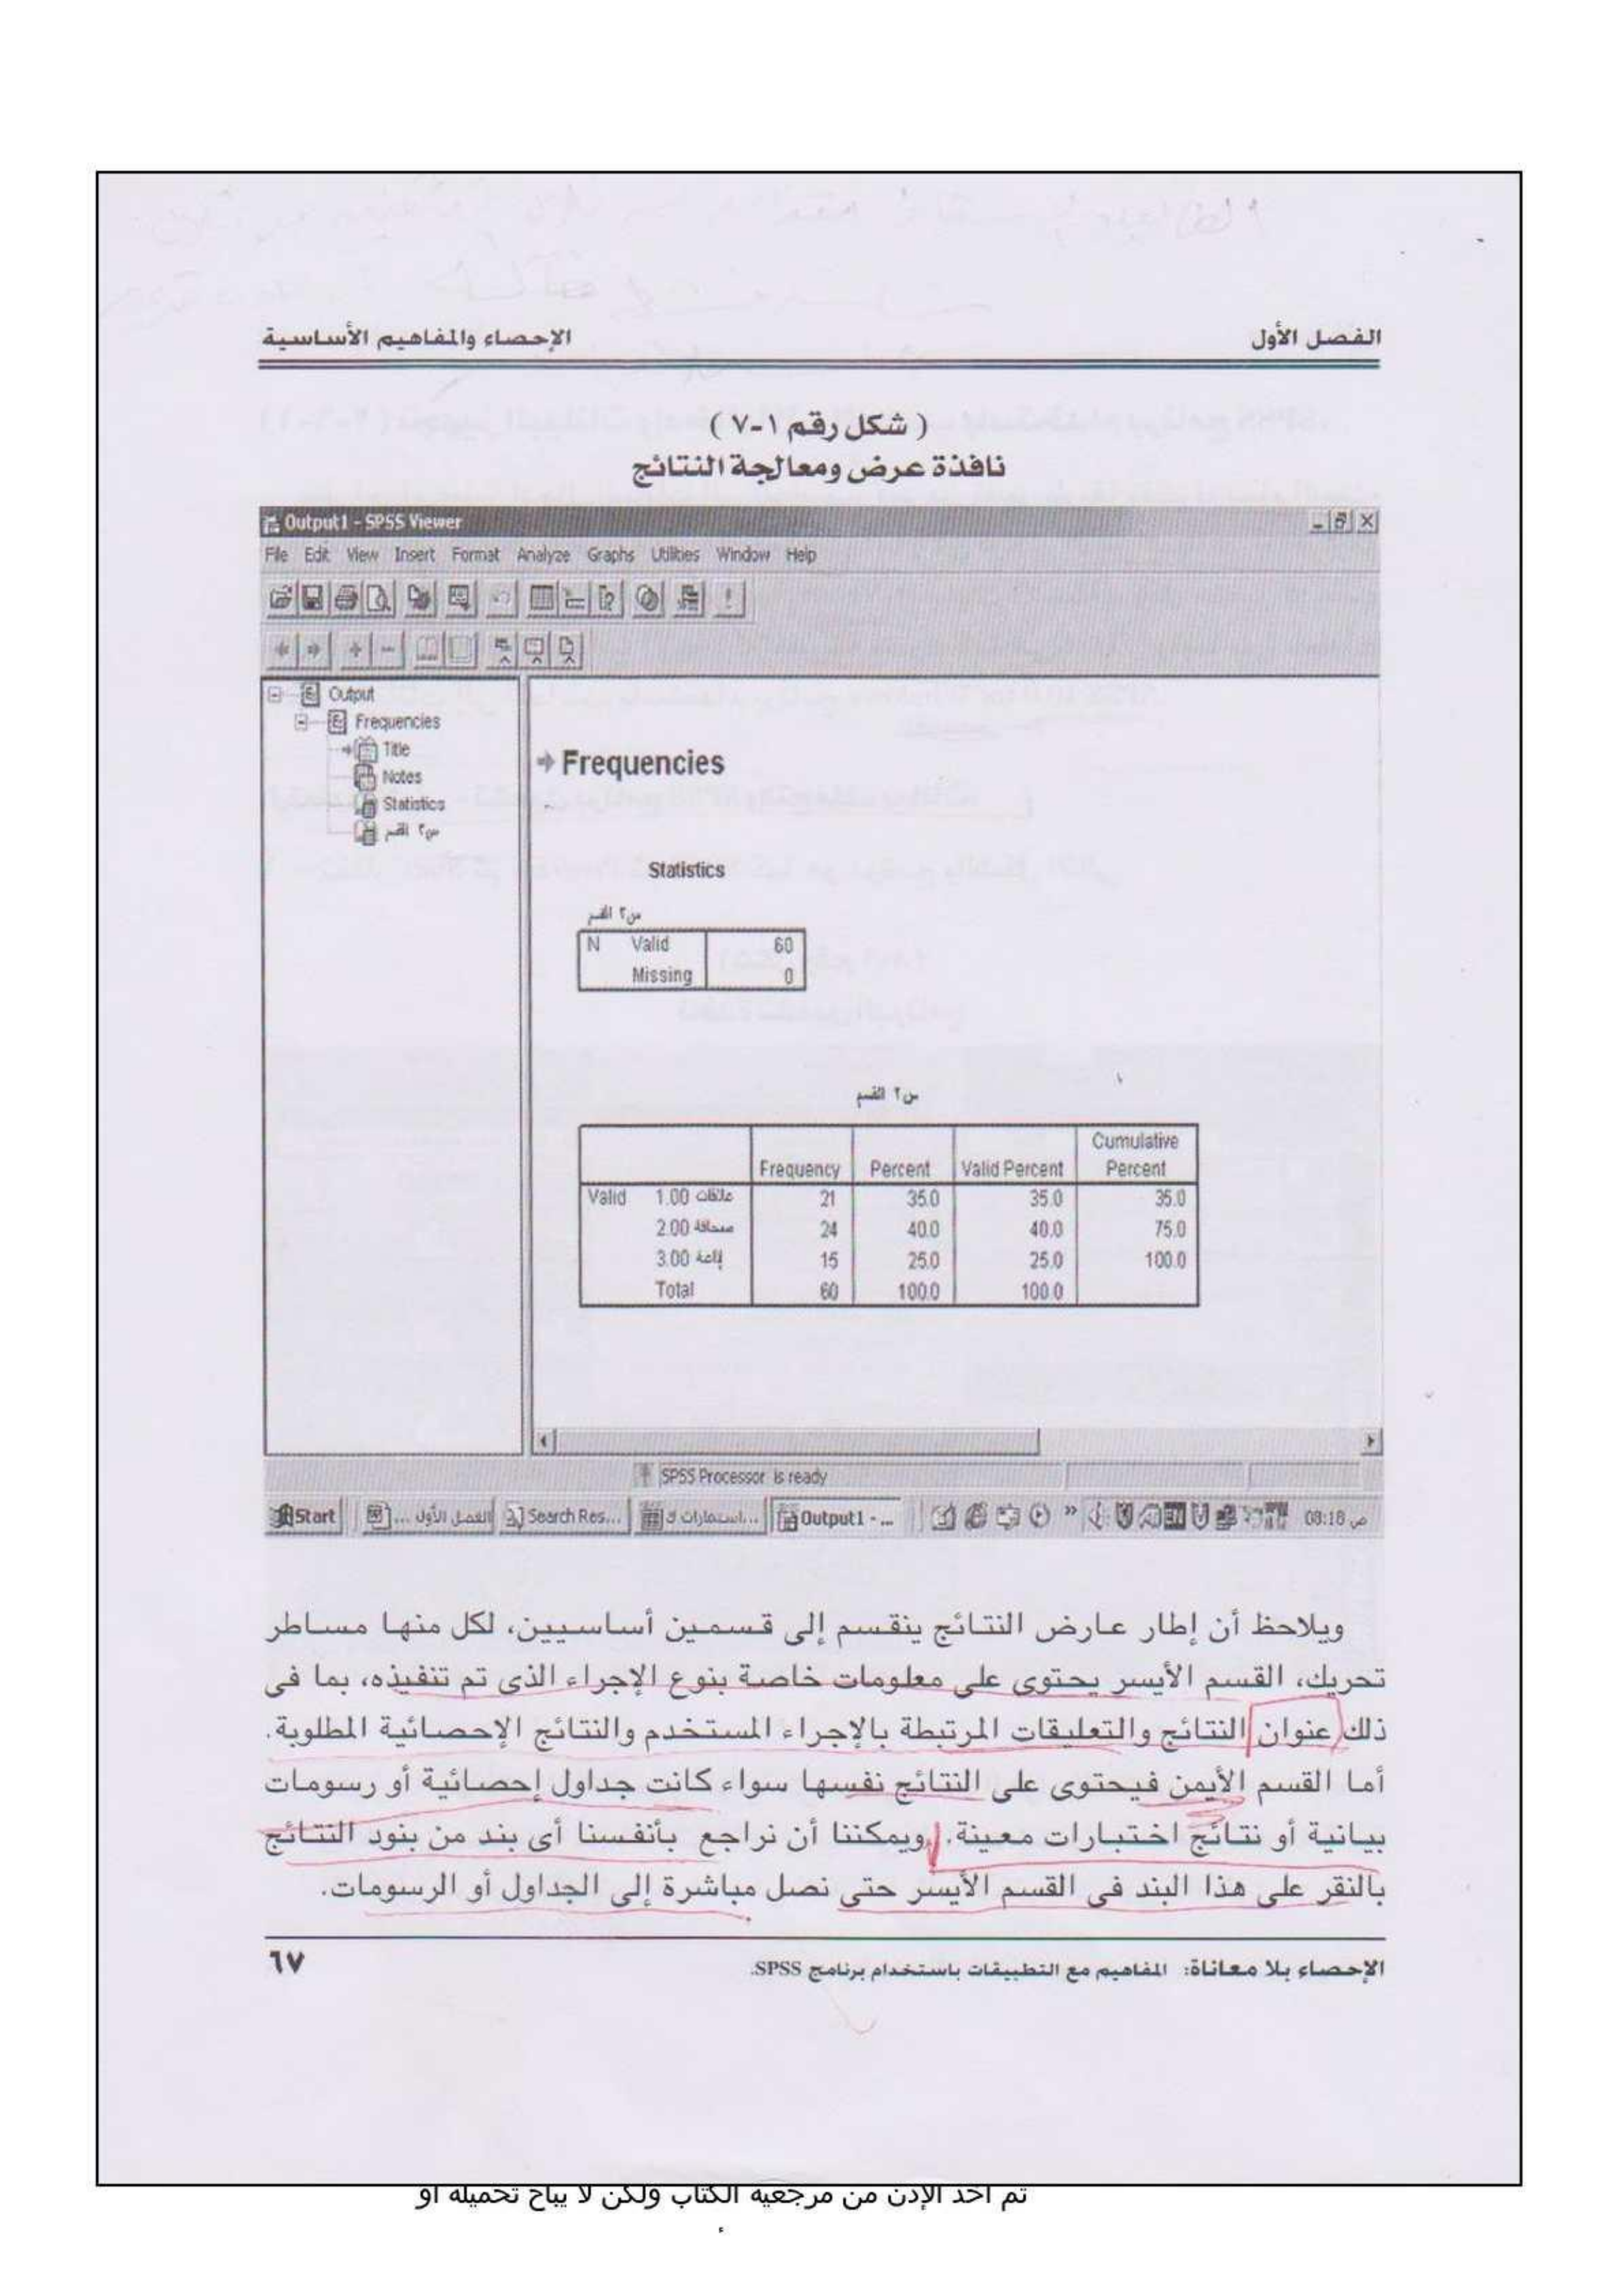 الفصل الأول
الإحصاء والمفاهيم الأساسية
( شكل رقم ١-٧ )
نافذة عرض ومعالجة النتائج
Output1 - SPSS Viewer
File Edit View Insert Format Analyze Graphs Utilities Window Help
Output
Frequencies
Title
Notes
Statistics
س٢ القسم
Frequencies
Statistics
س٢ القسم
N Valid 60
Missing 0
س٢ القسم
Frequency Percent Valid Percent Cumulative Percent
Valid 1.00 علاقات 21 35.0 35.0 35.0
2.00 صحافة 24 40.0 40.0 75.0
3.00 إذاعة 15 25.0 25.0 100.0
Total 60 100.0 100.0
SPSS Processor is ready
Start الفصل الأول ... Search Res... استمارات ك... Output1 - ... EN 08:18 ص
ويلاحظ أن إطار عارض النتائج ينقسم إلى قسمين أساسيين، لكل منها مساطر
تحريك، القسم الأيسر يحتوى على معلومات خاصة بنوع الإجراء الذى تم تنفيذه، بما فى
ذلك عنوان النتائج والتعليقات المرتبطة بالإجراء المستخدم والنتائج الإحصائية المطلوبة.
أما القسم الأيمن فيحتوى على النتائج نفسها سواء كانت جداول إحصائية أو رسومات
بيانية أو نتائج اختبارات معينة. ويمكننا أن نراجع بأنفسنا أى بند من بنود النتائج
بالنقر على هذا البند فى القسم الأيسر حتى نصل مباشرة إلى الجداول أو الرسومات.
الإحصاء بلا معاناة: المفاهيم مع التطبيقات باستخدام برنامج SPSS.
٦٧
تم أخذ الإذن من مرجعية الكتاب ولكن لا يباح تحميله أو